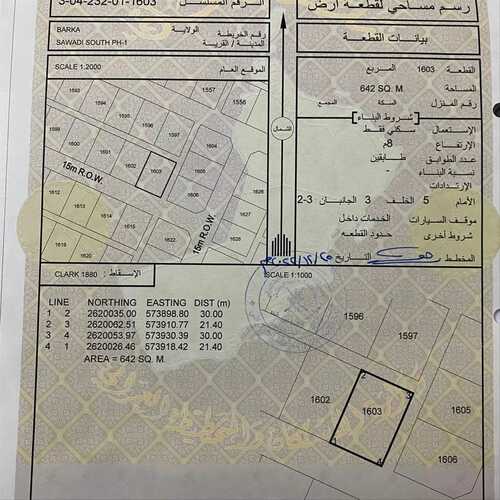 رسم مساحي لقطعة أرض
الرقم المسلسل 3-04-232-01-1603
بيانات القطعة
BARKA الولاية
رقم الخريطة
SAWADI SOUTH PH-1 المدينة / القرية
SCALE 1:2000 الموقع العام
القطعة 1603 المربع
المساحة 642 SQ. M.
رقم المنزل السكة المجمع
شروط البناء
الإستعمال سكني فقط
الإرتفاع 8م
عدد الطوابق طابقين
نسبة البناء -
الإرتدادات
الأمام 5 الخلف 3 الجانبان 3-2
موقف السيارات الخدمات داخل
شروط أخرى حدود القطعه
المخطط التاريخ
الشمال
1557
1556
1595
1594
1596
1597
1601
1602
1603
1604
1605
1606
1600
1612
1610
1614
1616
1618
1619
1620
15m R.O.W.
15m R.O.W.
CLARK 1880 الإسقاط:
SCALE 1:1000
LINE NORTHING EASTING DIST (m)
1 2 2620035.00 573898.80 30.00
2 3 2620062.51 573910.77 21.40
3 4 2620053.97 573930.39 30.00
4 1 2620026.46 573918.42 21.40
AREA = 642 SQ. M.
1596
1597
1602
1603
1605
1606
1
2
3
4